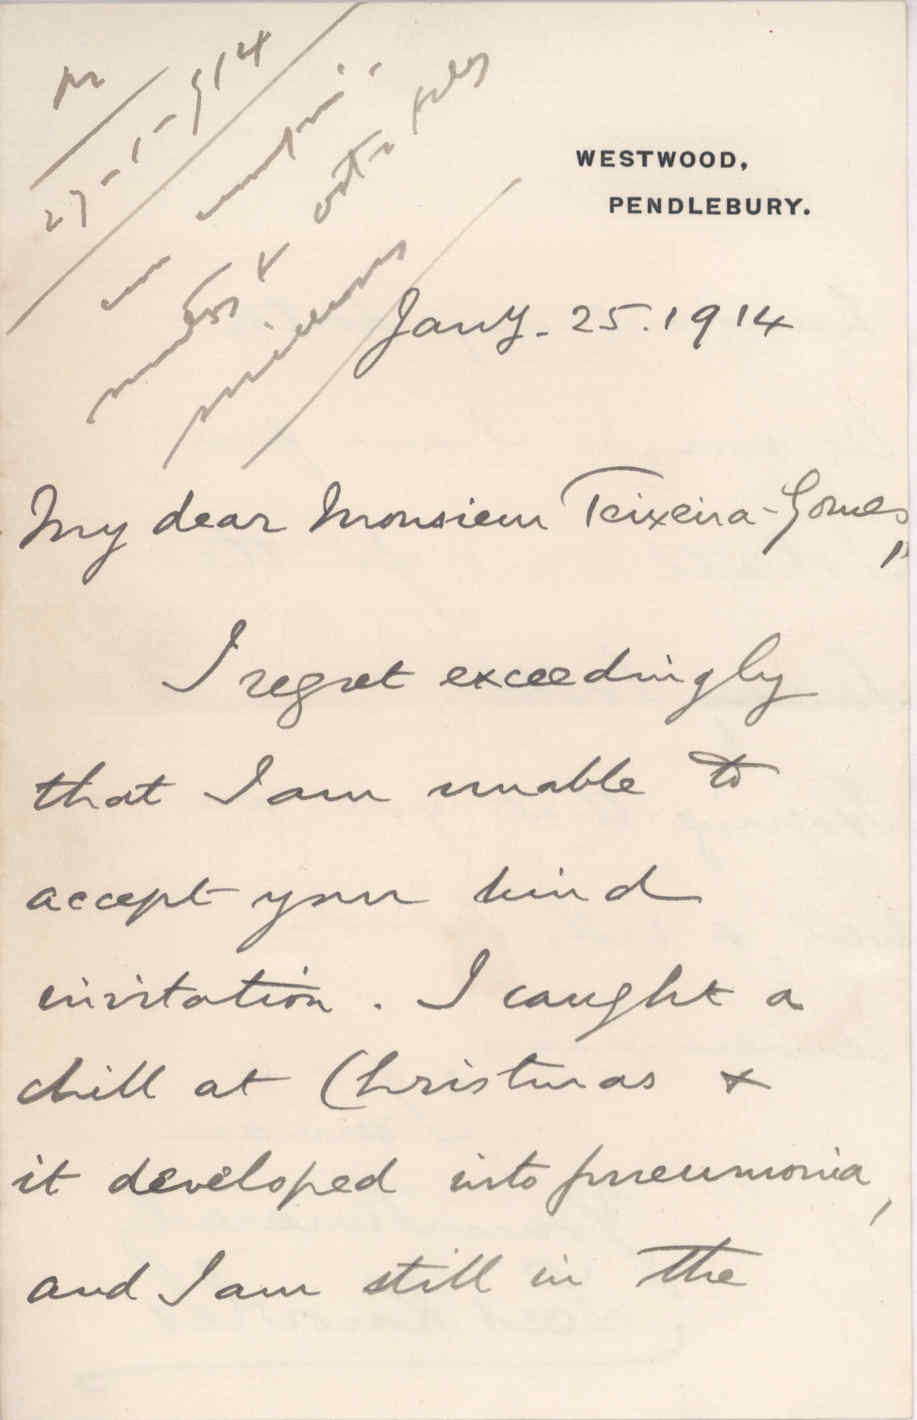 27-1-914
WESTWOOD,
PENDLEBURY.
Jany. 25. 1914
My dear Monsieur Teixeira-Gomes,
I regret exceedingly
that I am unable to
accept your kind
invitation. I caught a
chill at Christmas &
it developed into pneumonia,
and I am still in the